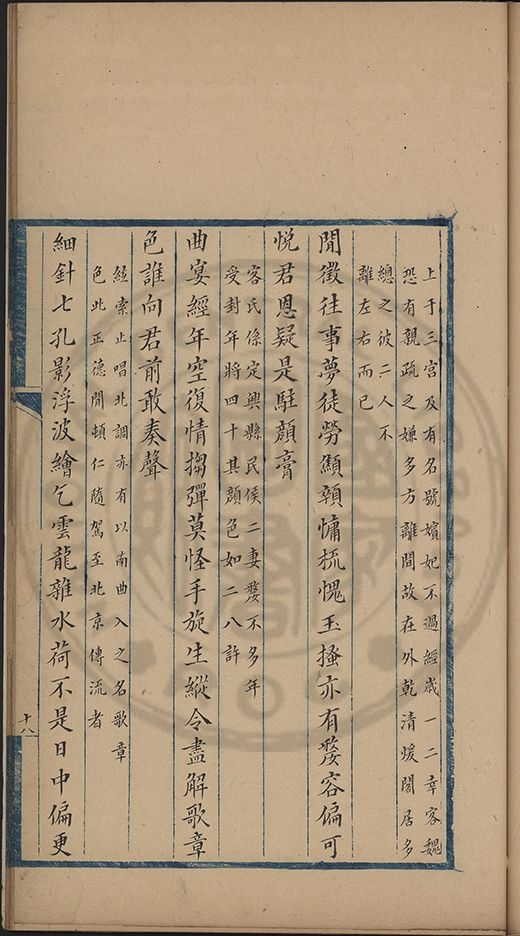 上于三宫及有名號嬪妃不過經歲一二幸客魏
恐有親疏之嫌多方離間故在外乾清煖閣居多
總之彼二人不
離左右而已
閒徵往事夢徒勞顣頞慵梳愧玉搔亦有嫠容偏可
悅君恩疑是駐顔膏
客氏係定興縣民侯二妻嫠不多年
受封年將四十其顔色如二八許
曲宴經年空復情搊彈莫怪手旋生縱令盡解歌章
色誰向君前敢奏聲
絃索止唱北調亦有以南曲入之名歌章
色此正德間頓仁隨駕至北京傳流者
細針七孔影浮波繪乞雲龍雜水荷不是日中偏更
十八